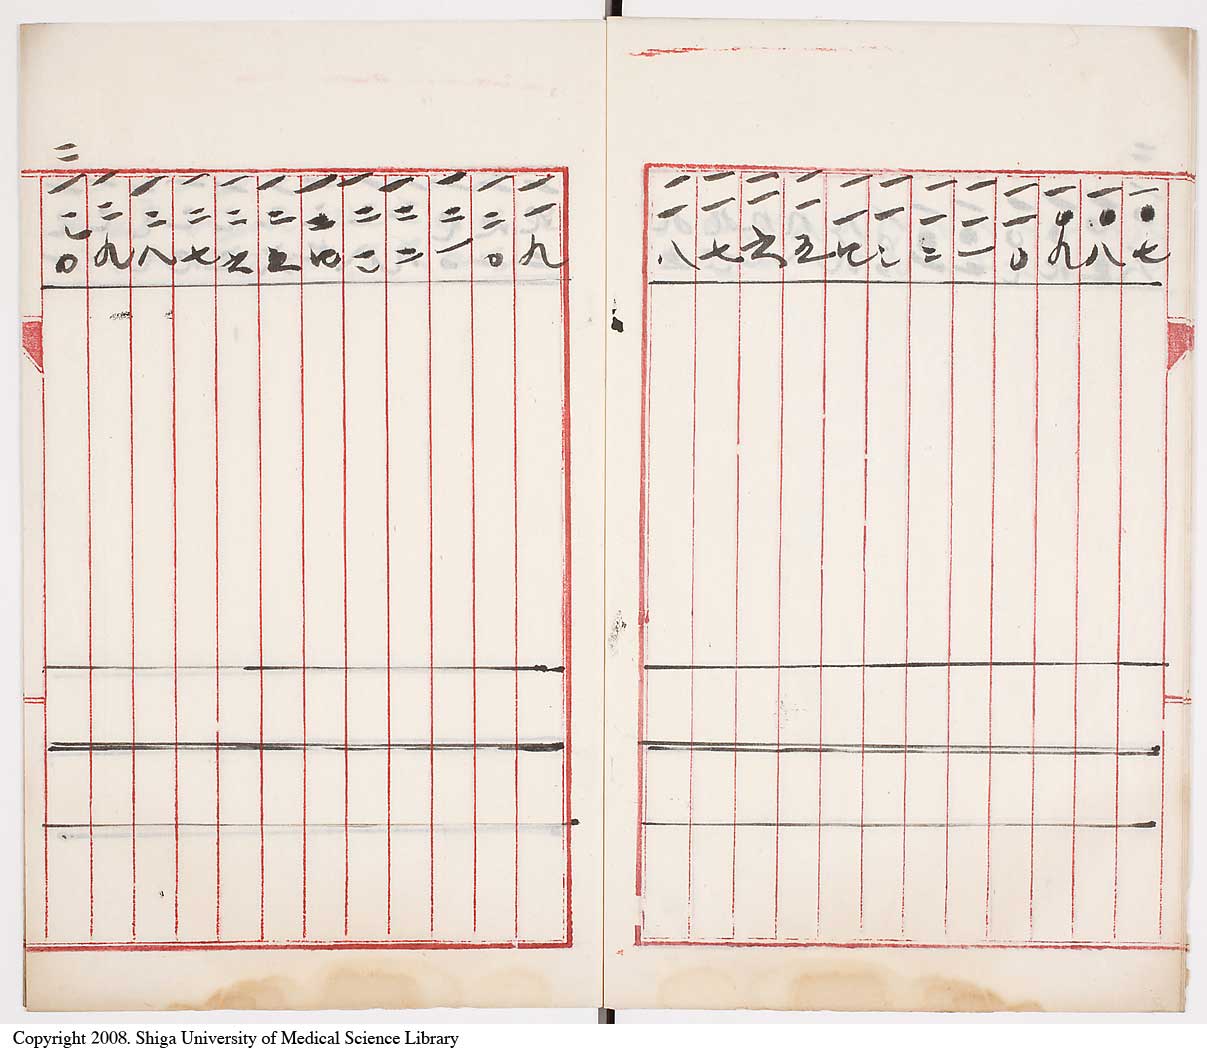 一〇七
一〇八
一〇九
一一〇
一一一
一一二
一一三
一一四
一一五
一一六
一一七
一一八
一一九
一二〇
一二一
一二二
一二三
一二四
一二五
一二六
一二七
一二八
一二九
二
一三〇
Copyright 2008. Shiga University of Medical Science Library